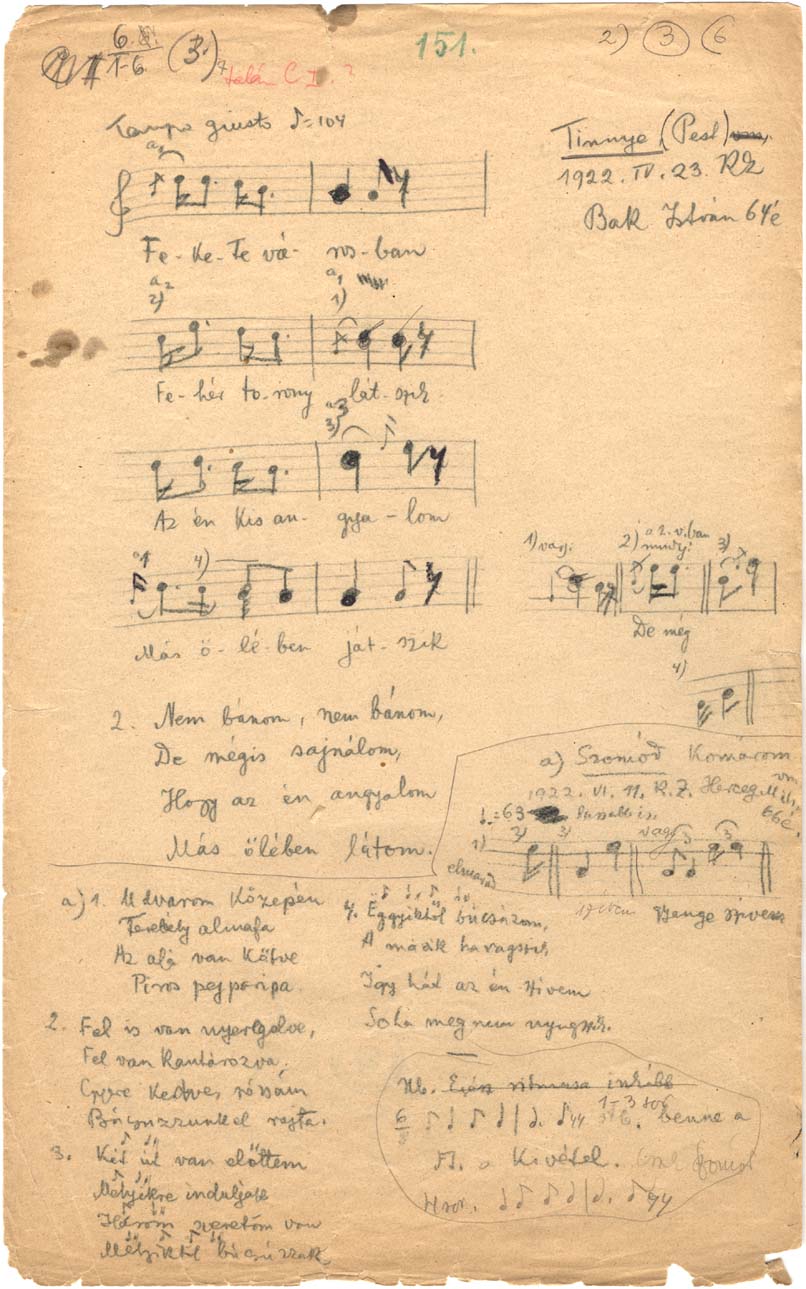 6.
1-6.
(3.)
talán C I. ?
151.
2) 3 6
Tempo giusto ♪=104
Tinnye (Pest)
1922. IV. 23. RZ
Bak István 64é
Fe-ke-te vá- ros-ban
a2
2)
a1
1)
Fe-hér to-rony lát-szik
a3
3)
Az én kis an- gya-lom
a1
4)
Más ö-lé-ben ját-szik
1) vagy:
2) a 2. v.ban mindig:
3)
De még
4)
2. Nem bánom, nem bánom,
De mégis sajnálom,
Hogy az én angyalom
Más ölében látom.
a) Szomód Komárom
1922. VI. 11. R. Z. Herceg
66é.
=63
1) 2) 3) vagy 3 3
elmarad
szívem gyenge szívem
a) 1. Udvarom közepén
Terebély almafa
Az alá van kötve
Piros pejparipa.
2. Fel is van nyergelve,
Fel van kantározva,
Gyere kedve, rózsám
Búcsuzzunk el rajta.
3. Két út van előttem
Melyikre induljak
Három szeretőm van
Melyiktől búcsúzzak
4. Eggyiktől búcsúzom,
A másik haragszik,
Így hát az én szivem
Soha meg nem nyugszik.
Nb. Egész ritmusa inkább
6/8 1-3 sor benne a
M. a kivétel.
4 sor.